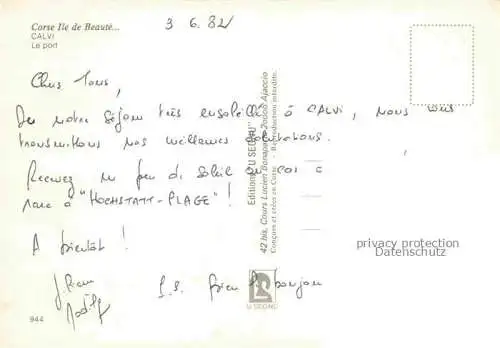 Corse Ile de Beauté...
CALVI
Le port
3 6. 82
Chers Tous,
De notre séjour très ensoleillé à CALVI, nous vous
transmettons nos meilleures salutations.
Recevez un peu de soleil au cas
rare à "HOCHSTATT-PLAGE" !
A bientôt !
bien bonjour
944
Editions "U SEGNU"
42 bis, Cours Lucien Bonaparte 20000 Ajaccio
Conçues et créées en Corse - Reproduction interdite.
U SEGNU
privacy protection
Datenschutz